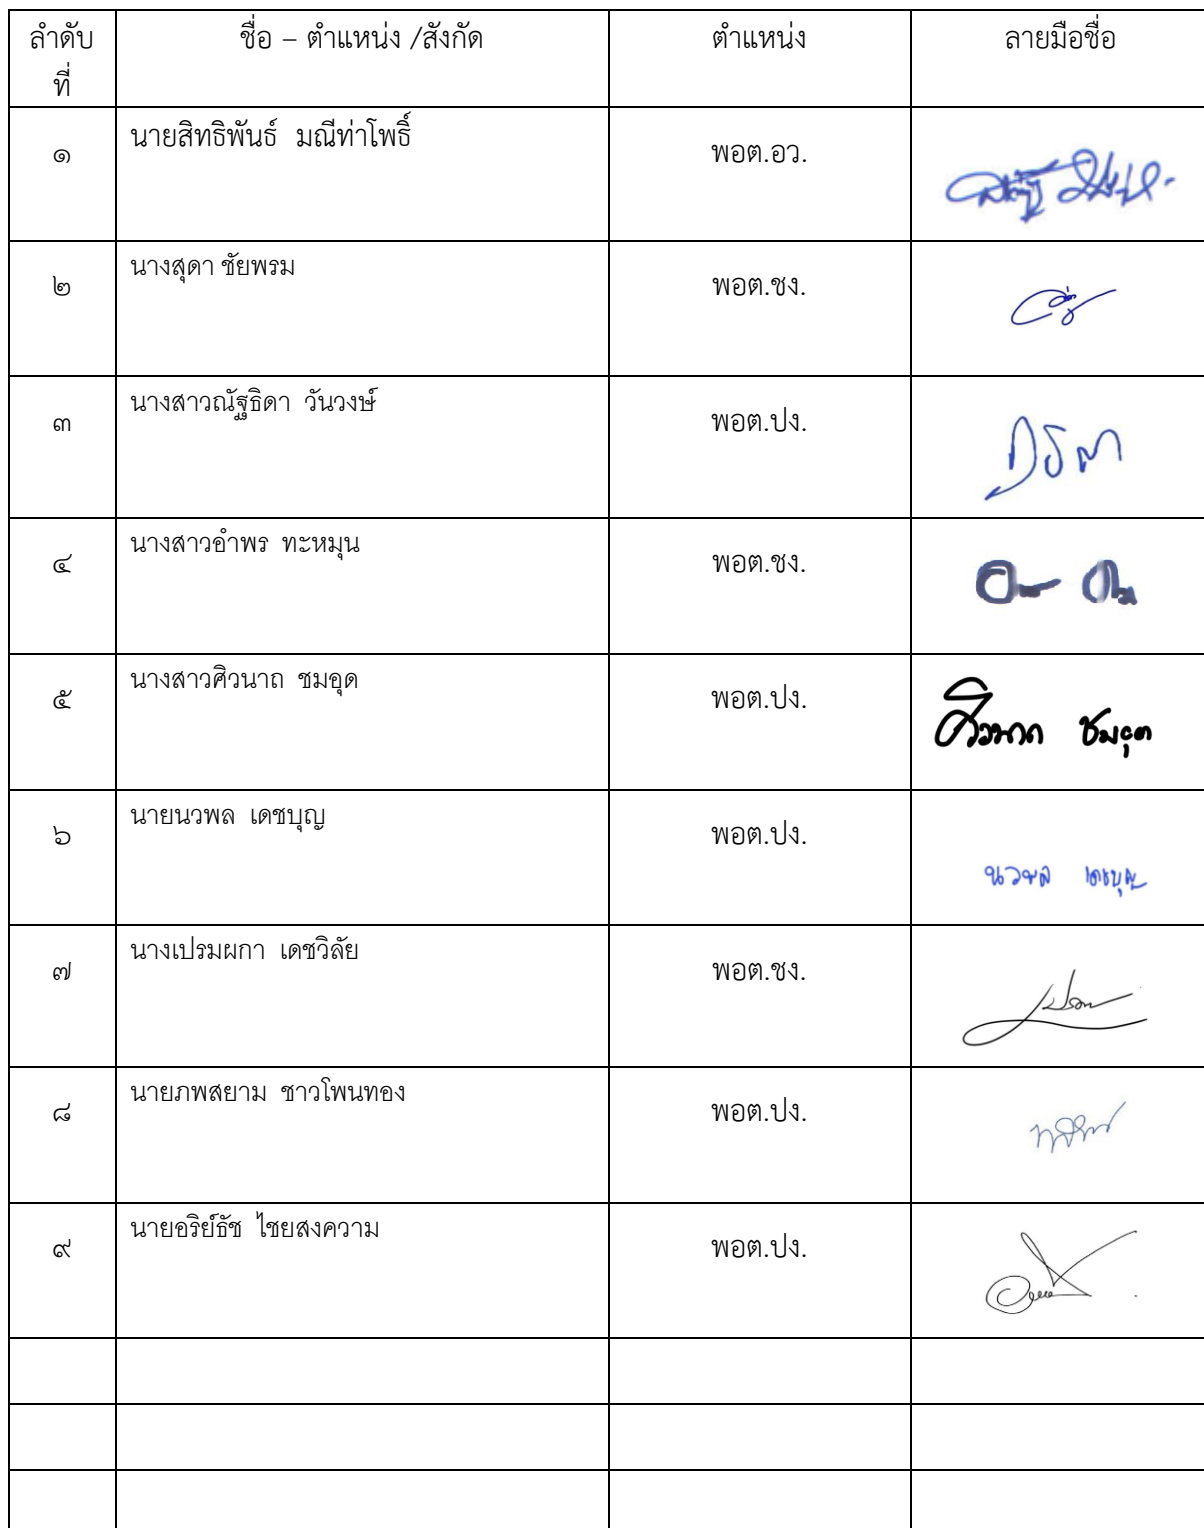 ลำดับ
ที่
ชื่อ – ตำแหน่ง /สังกัด
ตำแหน่ง
ลายมือชื่อ
๑
นายสิทธิพันธ์ มณีท่าโพธิ์
พอต.อว.
๒
นางสุดา ชัยพรม
พอต.ชง.
๓
นางสาวณัฐธิดา วันวงษ์
พอต.ปง.
๔
นางสาวอำพร ทะหมุน
พอต.ชง.
๕
นางสาวศิวนาถ ชมอุด
พอต.ปง.
ศิวนาถ ชมอุด
๖
นายนวพล เดชบุญ
พอต.ปง.
นวพล เดชบุญ
๗
นางเปรมผกา เดชวิลัย
พอต.ชง.
๘
นายภพสยาม ชาวโพนทอง
พอต.ปง.
๙
นายอริย์ธัช ไชยสงความ
พอต.ปง.